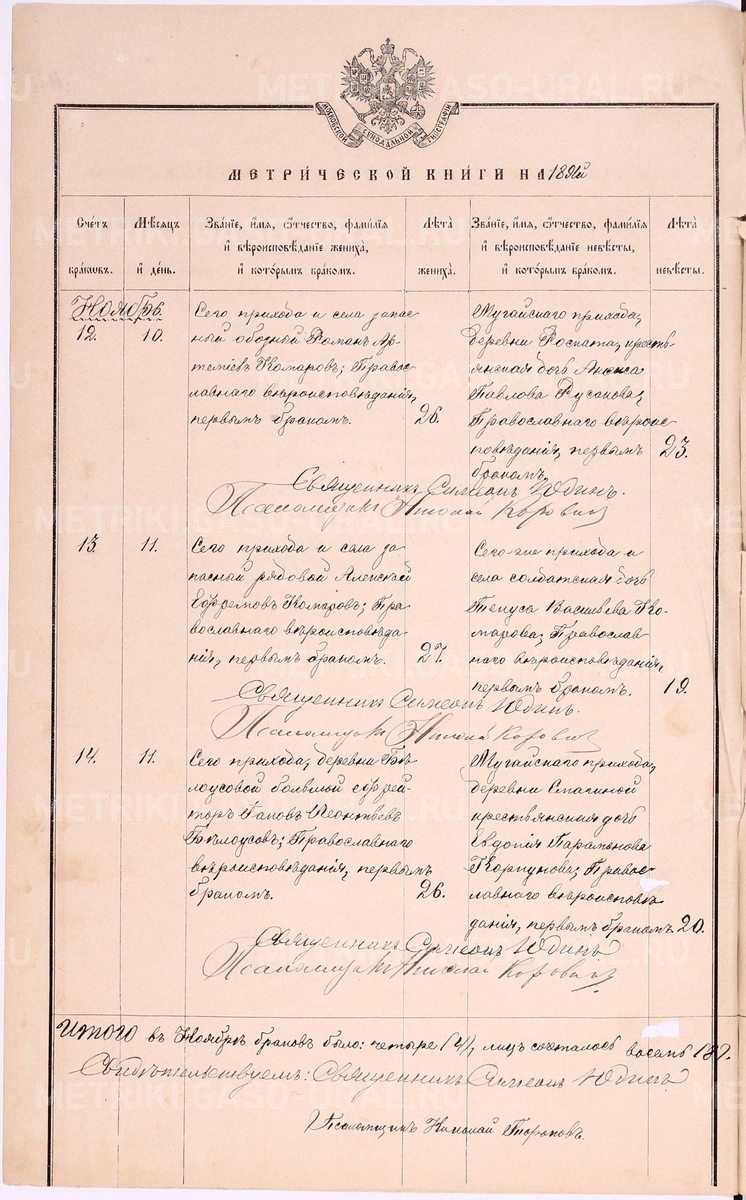 МОСКОВСКОЙ СѴНОДАЛЬНОЙ ТИПОГРАФІИ
МЕТРИ́ЧЕСКОЙ КНИ́ГИ НА 1894й
Сче́тъ бра́кѡвъ.
Мѣ́сяцъ и҆ де́нь.
Зва́нїе, и҆́мя, ѻ҆́тчество, фами́лїя и҆ вѣроисповѣ́данїе жениха̀, и҆ кото́рымъ бра́комъ.
Лѣ́та жениха̀.
Зва́нїе, и҆́мя, ѻ҆́тчество, фами́лїя и҆ вѣроисповѣ́данїе невѣ́сты, и҆ кото́рымъ бра́комъ.
Лѣ́та невѣ́сты.
Ноябь.
12.
10.
Сего прихода и села запас-
ный обозный Романъ Ар-
теміевъ Комаровъ; Право-
славнаго вѣроисповѣданія,
первымъ бракомъ.
26.
Мугайскаго прихода,
деревни Роспата, кресть-
янская дочь
Павлова Русакова;
Православнаго вѣроис-
повѣданія, первымъ
бракомъ.
23.
Священникъ Симеонъ Юдинъ.
Псаломщикъ Николай
13.
11.
Сего прихода и села за-
пасный рядовой Алексѣй
Ефремовъ Комаровъ; Пра-
вославнаго вѣроисповѣда-
нія, первымъ бракомъ.
27.
Сего-же прихода и
села солдатская дочь
Васильева Ко-
марова; Православ-
наго вѣроисповѣданія,
первымъ бракомъ.
19.
Священникъ Симеонъ Юдинъ.
Псаломщикъ Николай
14.
11.
Сего прихода, деревни Бѣ-
лоусовой ефрей-
торъ Леонтьевъ
Бѣлоусовъ; Православнаго
вѣроисповѣданія, первымъ
бракомъ.
26.
Мугайскаго прихода,
деревни Спасиной
крестьянская дочь
Евдокія Парамонова
Православ-
славнаго вѣроисповѣ-
данія, первымъ бракомъ.
20.
Священникъ Симеонъ Юдинъ
Псаломщикъ Николай
Итого въ Ноябрѣ браковъ было: четыре (4), лицъ сочталось восемь (8).
Свидѣтельствуемъ: Священникъ Симеонъ Юдинъ
Псаломщикъ Николай Торопов.
METRIKI.GASO-URAL.RU